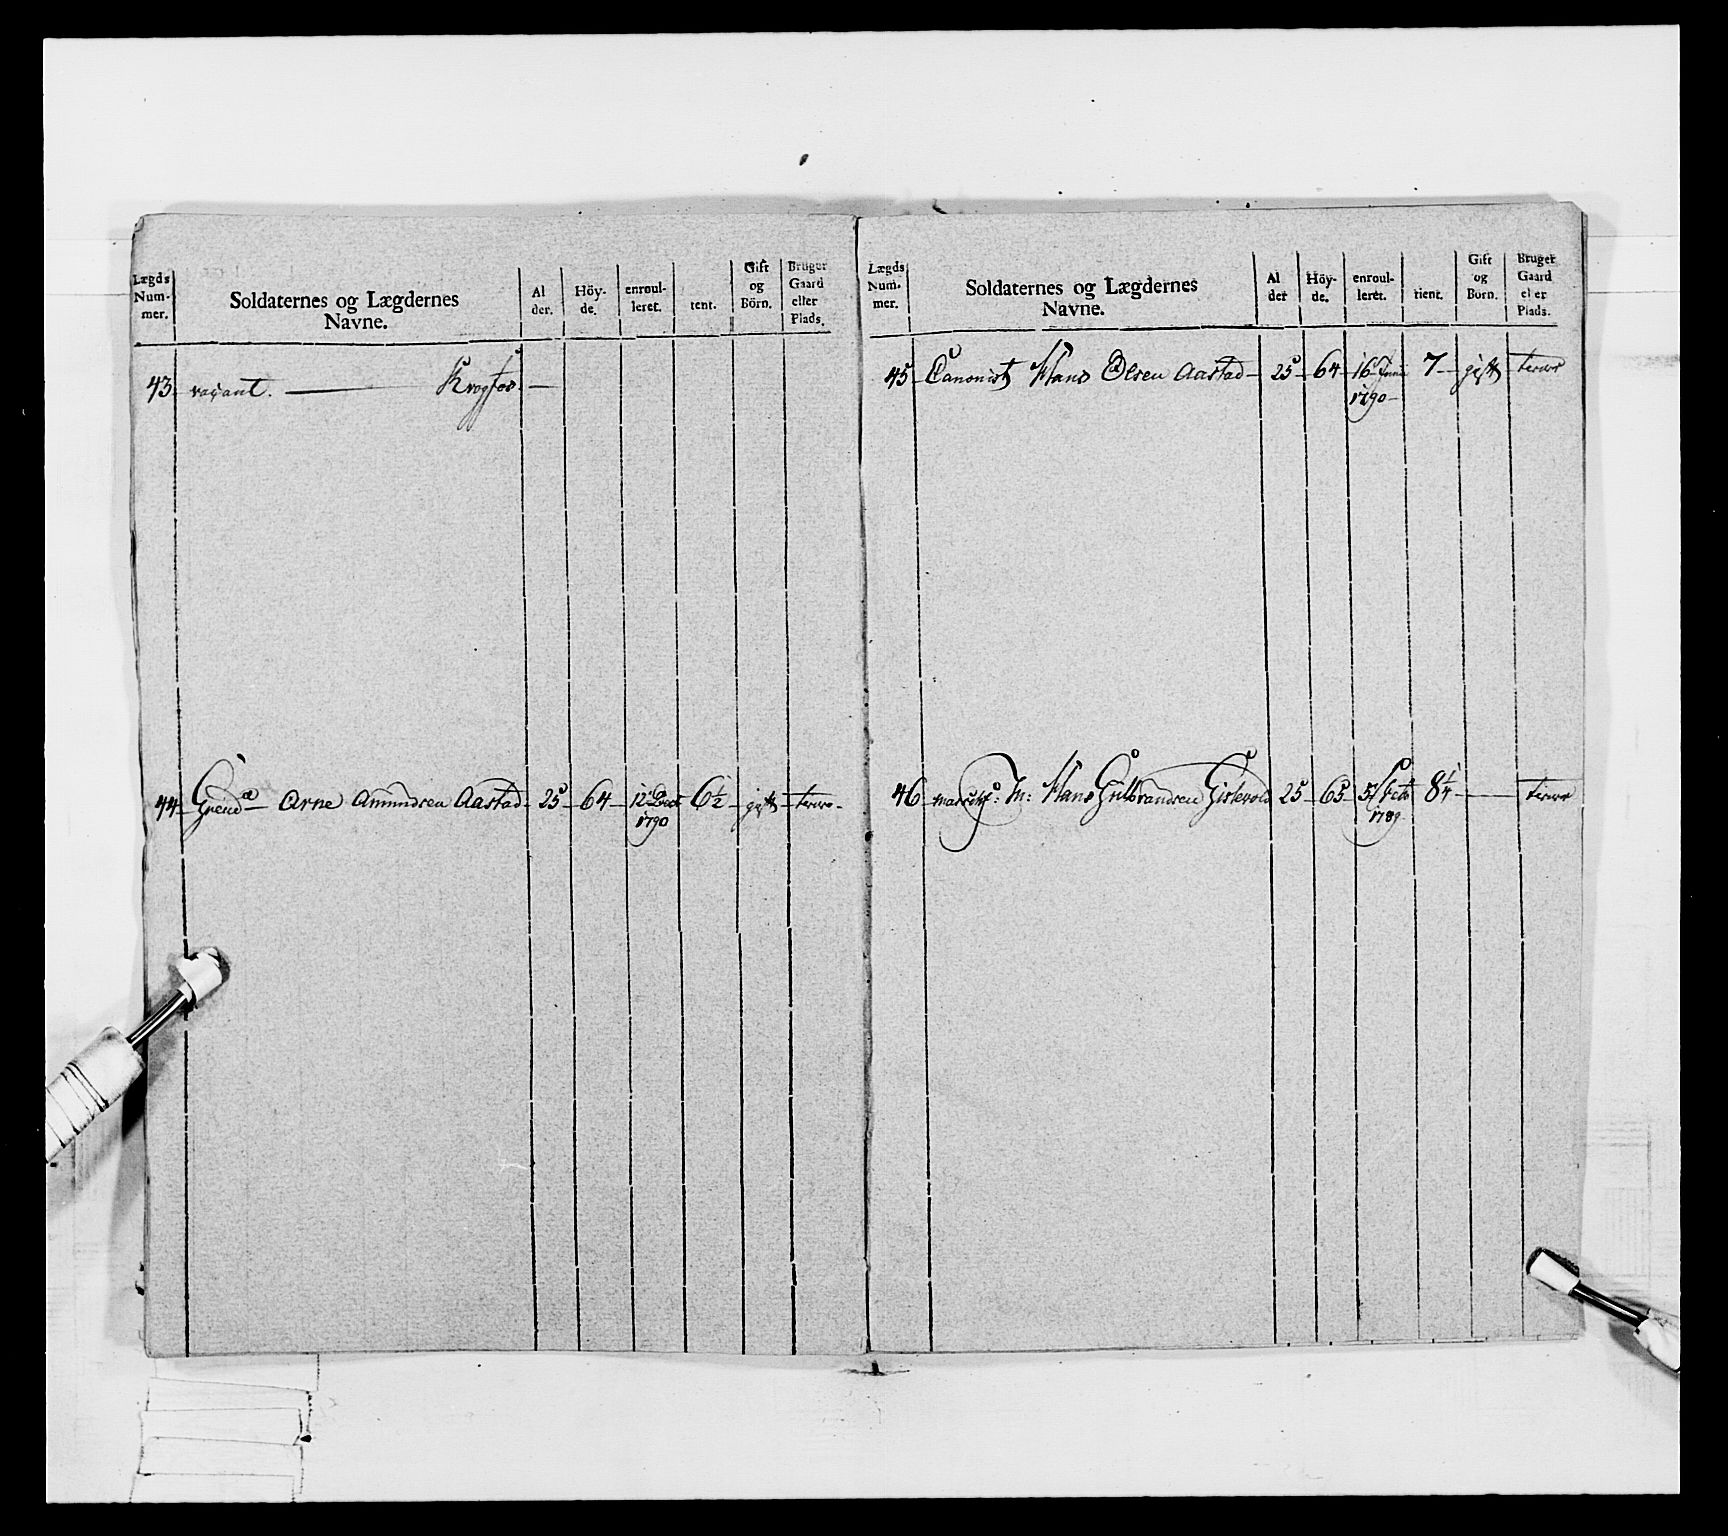 Lægds Num- mer.
Soldaternes og Lægdernes Navne.
Al der.
Höy- de.
enroul- leret.
tient.
Gift og Börn.
Bruger Gaard eller Plads.
43. vacant. — Krogfos. —
44 Grend Arne Amundsen Aastad 25 64 12 Dec 6½ gift tiener
1790
Lægds Num- mer.
Soldaternes og Lægdernes Navne.
Al der
Höy- de.
enroul- leret.
tient.
Gift og Börn.
Bruger Gaard eller Plads.
45 Canonist Hans Olsen Aastad 25 64 16 Juni 7 gift tiener
1790
46 Hans Gulbrandsen 25 65 8¼ — tiener
1789